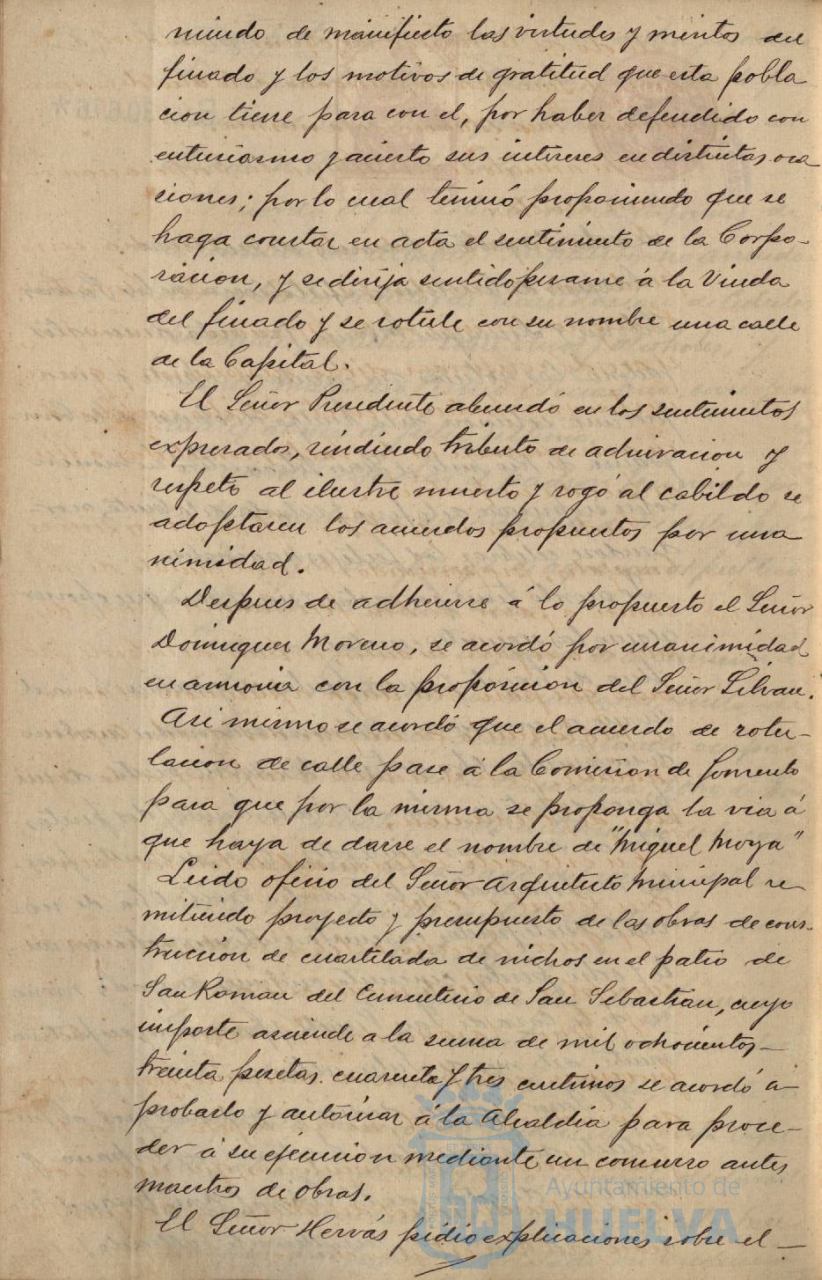 niendo de manifiesto las virtudes y meritos del
finado y los motivos de gratitud que esta pobla
cion tiene para con el, por haber defendido con
entusiasmo y acierto sus intereses en distintas oca
siones; por lo cual teminó proponiendo que se
haga constar en acta el sentimiento de la Corpo-
racion, y se dirija sentido pesame á la Viuda
del finado y se rotule con su nombre una calle
de la Capital.
El Señor Presidente abundó en los sentimientos
expresados, rindiendo tributo de admiracion y
respeto al ilustre muerto y rogó al cabildo se
adoptaren los acuerdos propuestos por una
nimidad.
Despues de adherirse á lo propuesto el Señor
Dominguez Moreno, se acordó por unanimidad
en armonia con la proposicion del Señor
Asi mismo se acordó que el acuerdo de rotu-
lacion de calle pase á la Comision de fomento
para que por la misma se proponga la via á
que haya de darse el nombre de "Miguel Moya"
Leido oficio del Señor Arquitecto Municipal re-
mitiendo proyecto y presupuesto de las obras de cons-
truccion de cuartelada de nichos en el patio de
San Roman del Cementerio de San Sebastian, cuyo
importe asciende a la suma de mil ochocientos-
treinta pesetas cuarenta y tres centimos se acordó a-
probarlo y autorizar á la Alcaldia para proce-
der á su ejecucion mediante un concurso antes
maestros de obras.
El Señor Hervás pidio explicaciones sobre el-
Ayuntamiento de
HUELVA